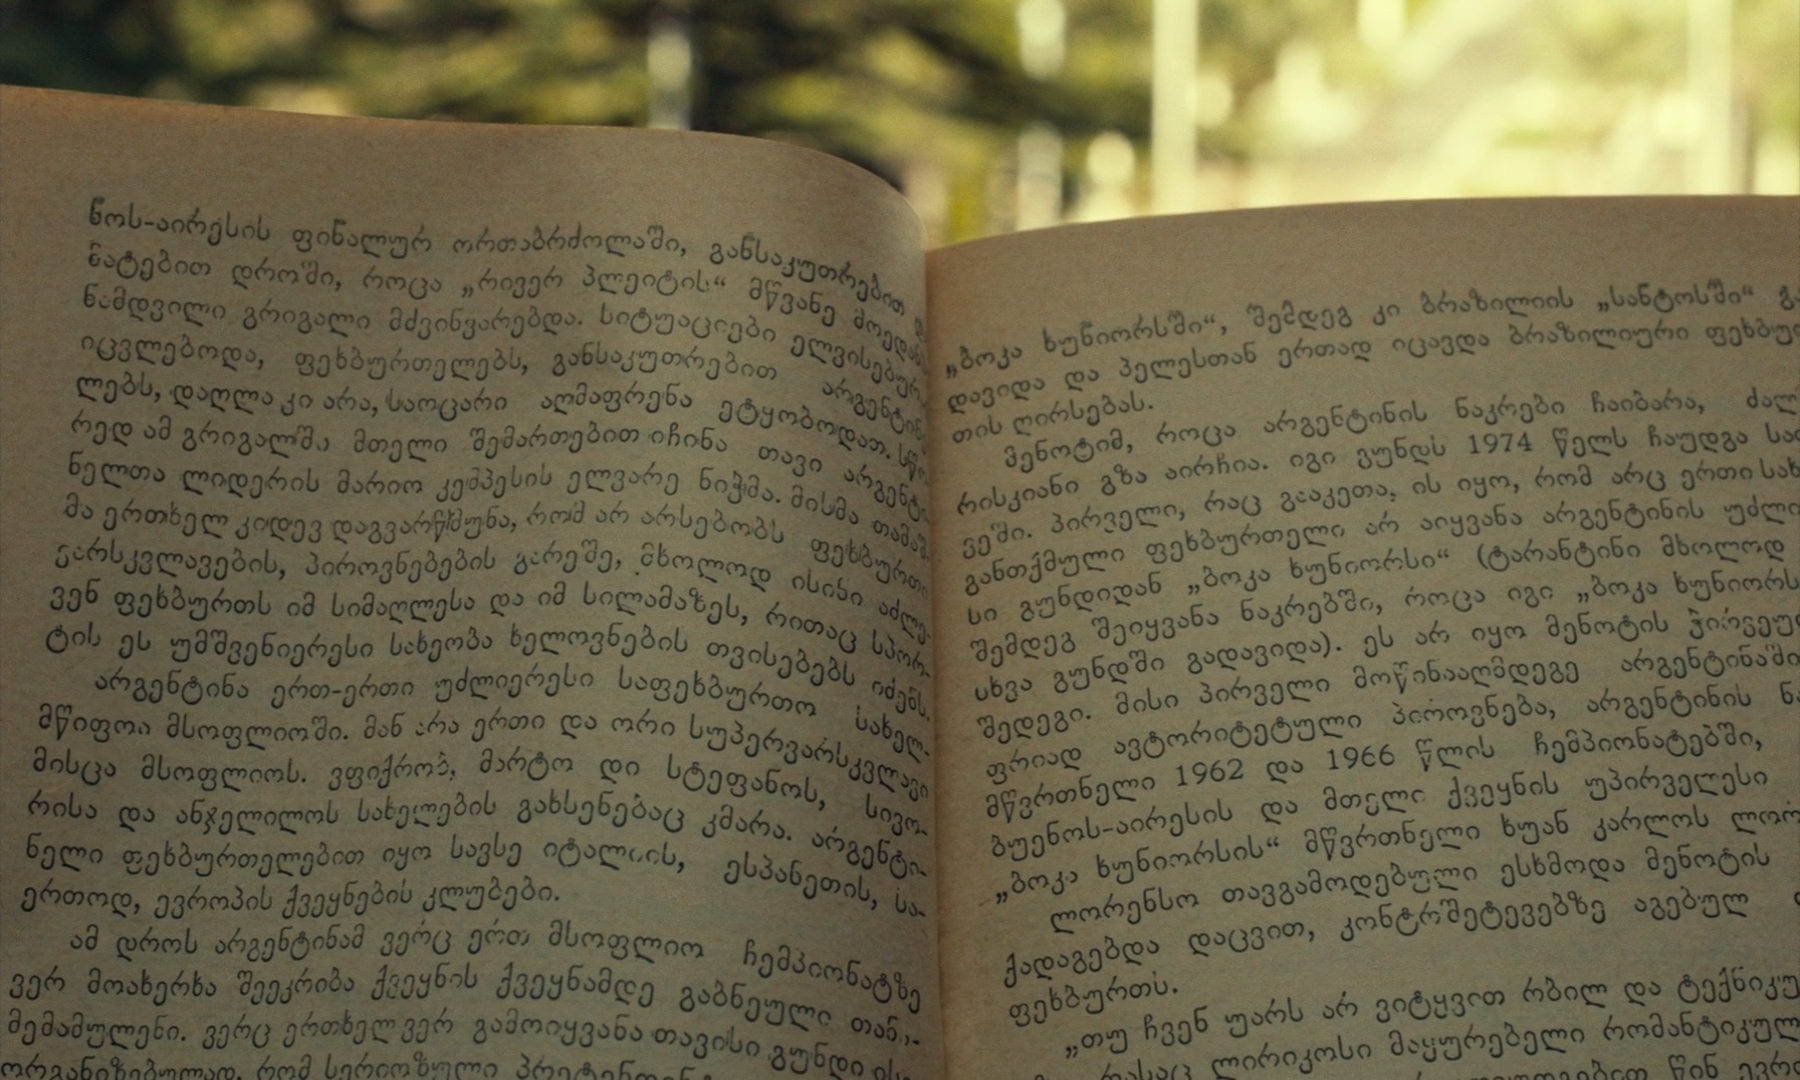 ნოს-აირესის ფინალურ ორთაბრძოლაში, განსაკუთრებით
ნატებით დროში, როცა „რივერ პლეიტის“ მწვანე
ნამდვილი გრიგალი მძვინვარებდა. სიტუაციები ელვისებურ
იცვლებოდა, ფეხბურთელებს, განსაკუთრებით არგენტინ
ლებს, დაღლა კი არა, საოცარი აღმაფრენა ეტყობოდათ.
რედ ამ გრიგალში მთელი შემართებით იჩინა თავი არგენტი
ნელთა ლიდერის მარიო კემპესის ელვარე ნიჭმა. მისმა თამაშ
მა ერთხელ კიდევ დაგვარწმუნა, რომ არ არსებობს ფეხბურთი
ვარსკვლავების, პიროვნებების გარეშე, მხოლოდ ისინი აძლე-
ვენ ფეხბურთს იმ სიმაღლესა და იმ სილამაზეს, რითაც სპორ-
ტის ეს უმშვენიერესი სახეობა ხელოვნების თვისებებს იძენს.
არგენტინა ერთ-ერთი უძლიერესი საფეხბურთო სახელ-
მწიფოა მსოფლიოში. მან არა ერთი და ორი სუპერვარსკვლავი
მისცა მსოფლიოს. ვფიქრობ, მარტო დი სტეფანოს, სივო-
რისა და ანჯელილოს სახელების გახსენებაც კმარა. არგენტი-
ნელი ფეხბურთელებით იყო სავსე იტალიის, ესპანეთის, სა-
ერთოდ, ევროპის ქვეყნების კლუბები.
ამ დროს არგენტინამ ვერც ერთ მსოფლიო ჩემპიონატზე
ვერ მოახერხა შეეკრიბა ქვეყნის ქვეყნამდე გაბნეული თანა-
მემამულენი. ვერც ერთხელ ვერ გამოიყვანა თავისი გუნდი ისე
ორგანიზებულად, რომ სერიოზული
„ბოკა ხუნიორსში“, შემდეგ კი ბრაზილიის „სანტოსში“
დავიდა და პელესთან ერთად იცავდა ბრაზილიური ფეხბურ
თის ღირსებას.
მენოტიმ, როცა არგენტინის ნაკრები ჩაიბარა, ძალ
რისკიანი გზა აირჩია. იგი გუნდს 1974 წელს ჩაუდგა სა
ვეში. პირველი, რაც გააკეთა, ის იყო, რომ არც ერთი სახ
განთქმული ფეხბურთელი არ აიყვანა არგენტინის უძლი
სი გუნდიდან „ბოკა ხუნიორსი“ (ტარანტინი მხოლოდ
შემდეგ შეიყვანა ნაკრებში, როცა იგი „ბოკა ხუნიორს
სხვა გუნდში გადავიდა). ეს არ იყო მენოტის
შედეგი. მისი პირველი მოწინააღმდეგე არგენტინაში
ფრიად ავტორიტეტული პიროვნება, არგენტინის
მწვრთნელი 1962 და 1966 წლის ჩემპიონატებში,
ბუენოს-აირესის და მთელი ქვეყნის უპირველესი
„ბოკა ხუნიორსის“ მწვრთნელი ხუან კარლოს
ლორენსო თავგამოდებული ესხმოდა მენოტის
ქადაგებდა დაცვით, კონტრშეტევებზე აგებულ
ფეხბურთს.
„თუ ჩვენ უარს არ ვიტყვით რბილ და ტექნიკუ
რასაც ლირიკოსი მაყურებელი რომანტიკულ
წინ ევრო